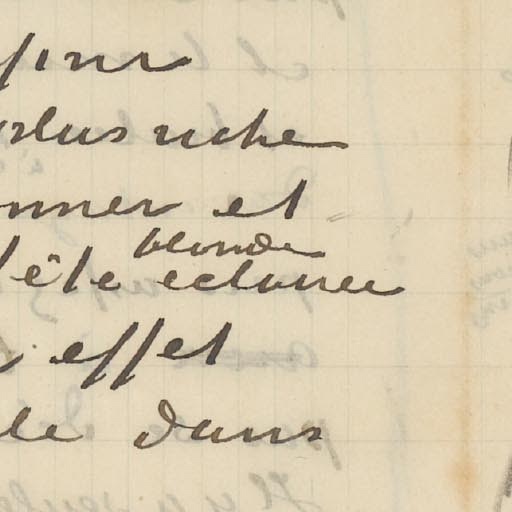 plus riche
onner et
blonde
tête éclairée
effet
le dans